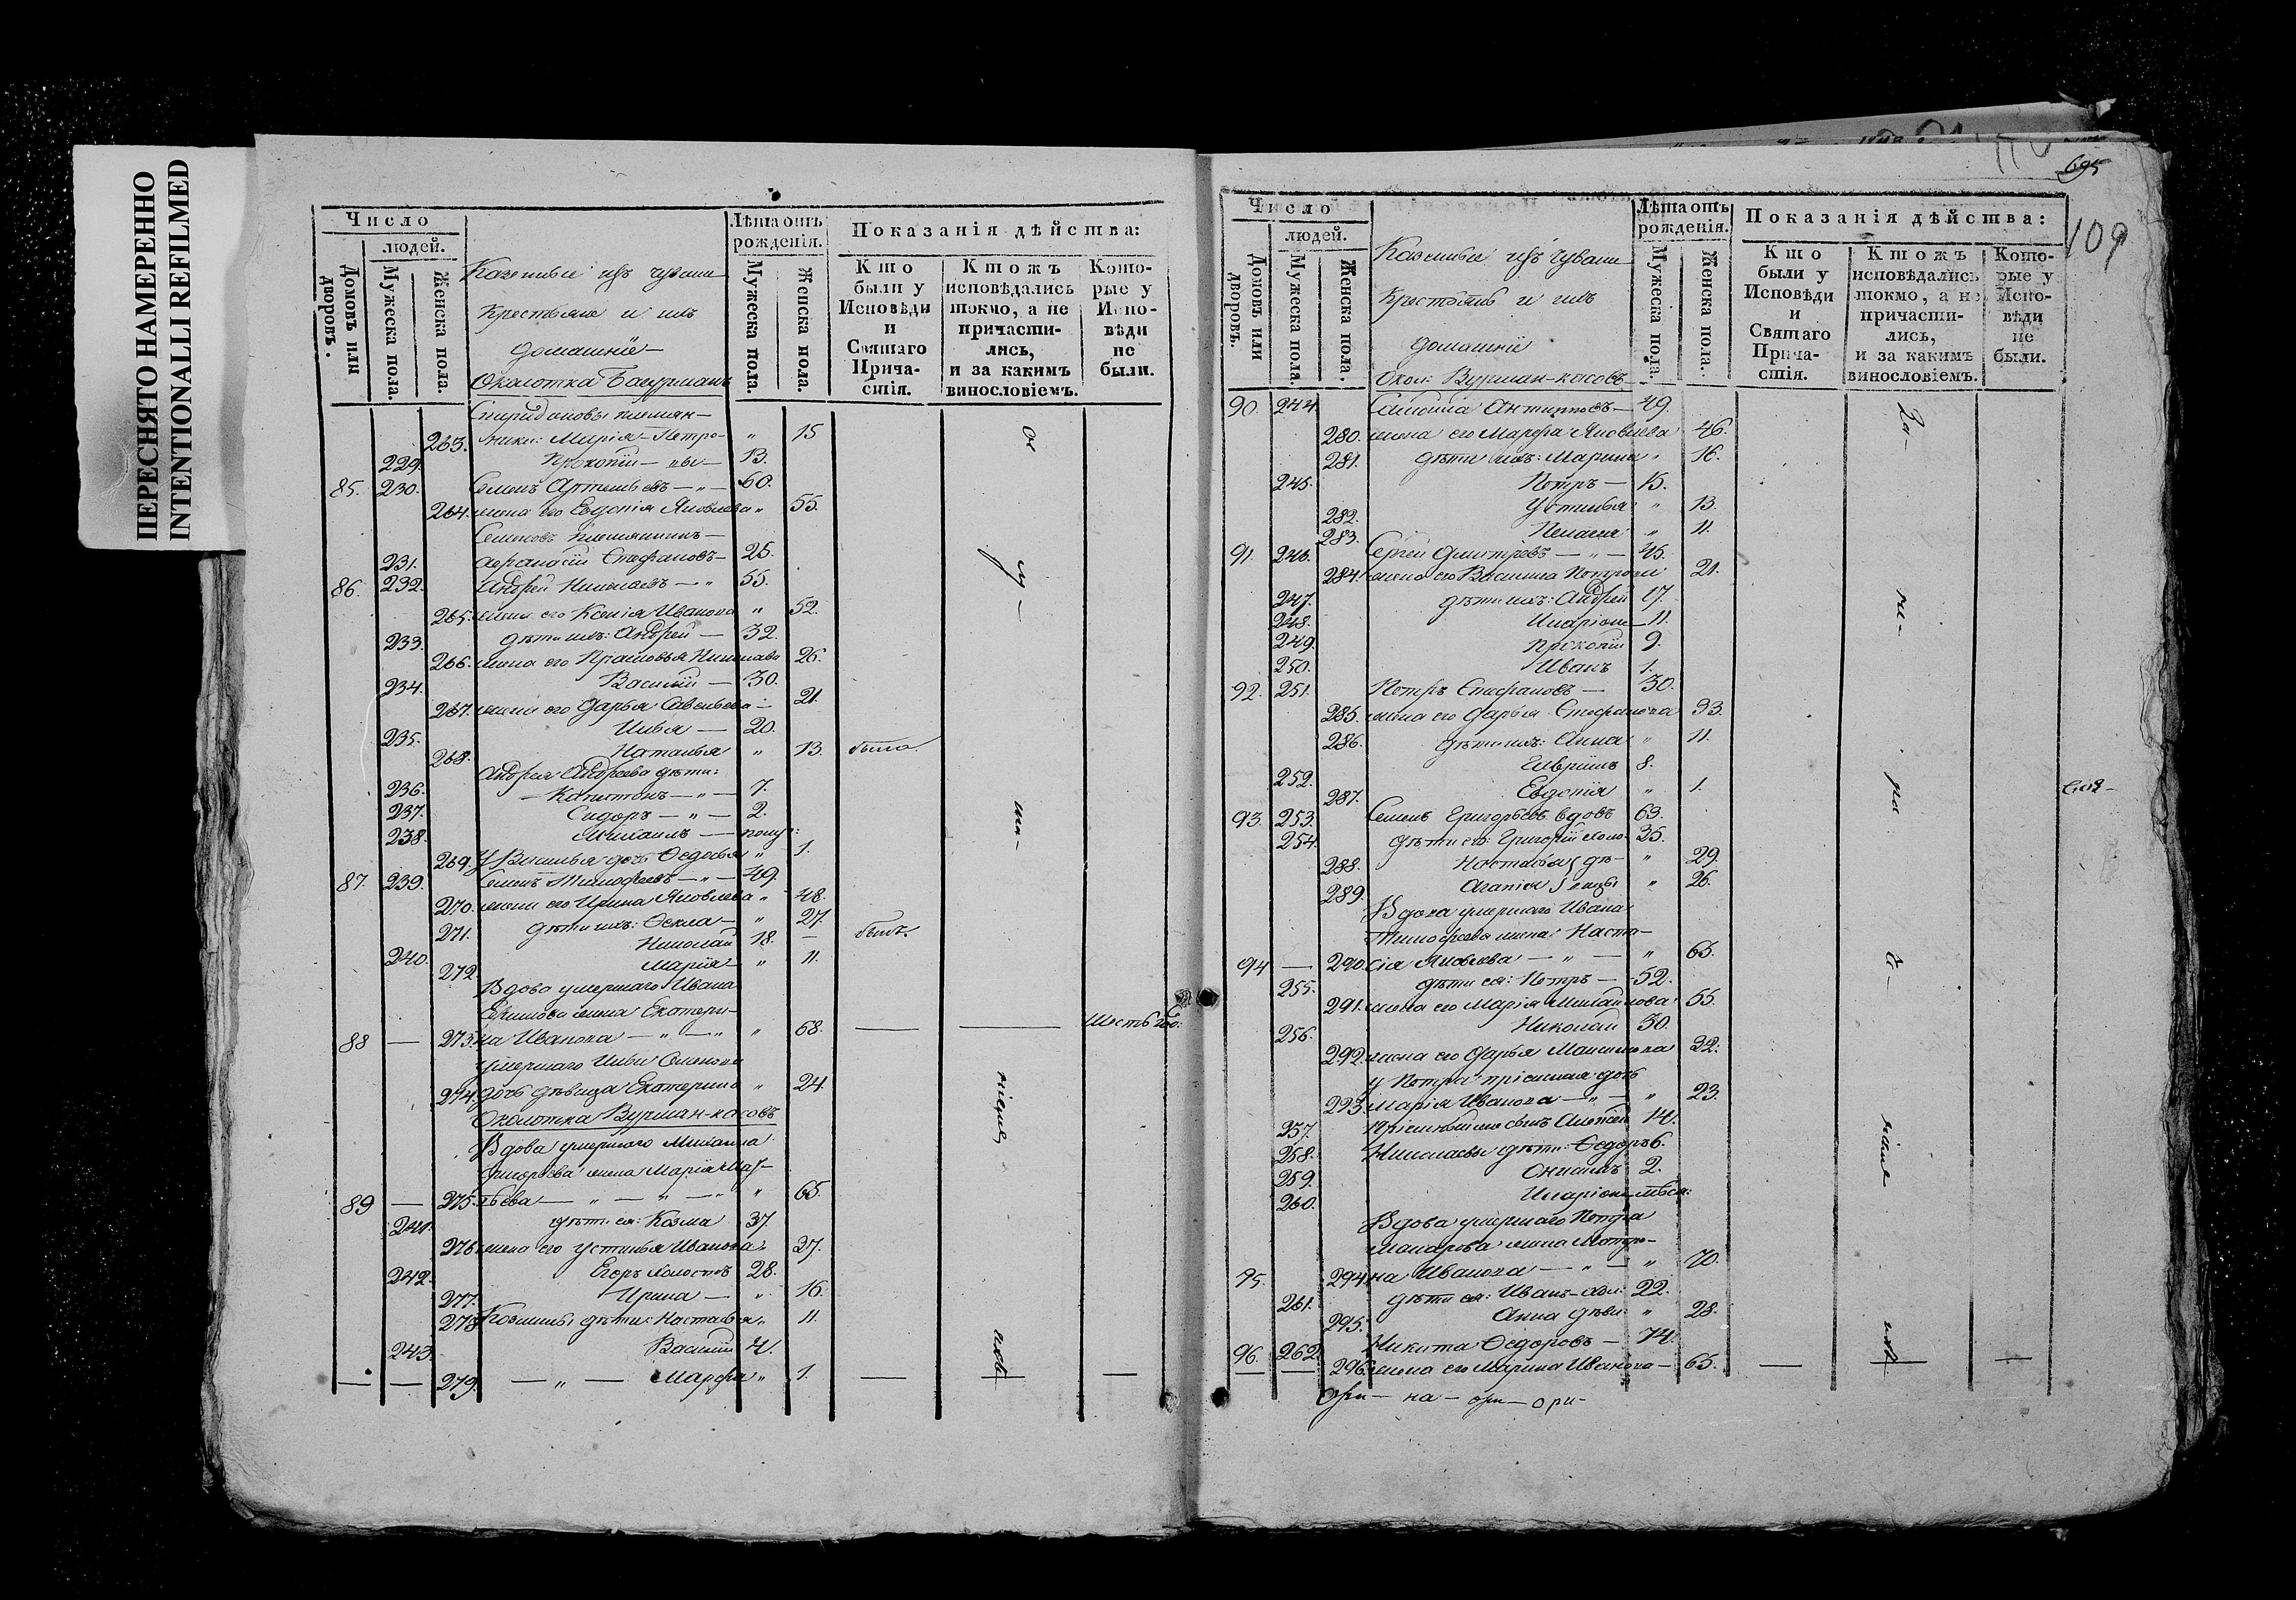 ПЕРЕСНЯТО НАМЕРЕННО
INTENTIONALLI REFILMED
Число
людей.
Домовъ или дворовъ.
Мужеска пола.
Женска пола.
Казенные изъ чуваш
Крестьяне и ихъ
домашніе
Околотка
Лѣта отъ рожденія.
Мужеска пола.
Женска пола.
Показанія дѣйства:
Кто были у Исповѣди и Святаго Причастія.
Ктожъ исповѣдались токмо, а не причастились, и за какимъ винословіемъ.
Которые у Исповѣди не были.
263. Марія Петро- " 15
229. Прокопій 13.
85. 230. Семенъ — " — 60.
264. жена его Евдокія Яковлева " 55.
Семеновъ племянникъ
231. Стефановъ 25.
86. 232. Андрей Николаевъ — " 55.
265. жена его Ксенія Иванова " 52.
233. дѣти ихъ: Андрей — 32.
266. жена его Прасковья 26.
234. Василій — 30.
267. жена его Дарья Савельева 21.
235. Илья — 20.
268. Наталья " 13. была
Андрея Андреева дѣти:
236. Капитонъ — " — 7.
237. Сидоръ — " — 2.
238. Михаилъ —
269. У Василья дочь Федосья " 1.
87. 239. Семенъ Тимофеевъ — " — 49.
270. жена его Ирина Яковлева " 48.
271. дѣти ихъ: Фекла — " 27.
240. Николай 18. — былъ.
272. Марія " 11.
Вдова умершаго Ивана
жена Екатери-
88 — 273. на Иванова — " — " 68.
умершаго Ильи Семенова
274. дочь дѣвица Екатерина " 24.
Околотка Вурман-касовъ
Вдова умершаго Михаила
Григорьева жена Марія Мат-
89 — 275. вѣева — " — " — " 65.
241. дѣти ея: Козма 37.
276. жена его Устинья Иванова " 37.
242. Егоръ холостъ 28.
277. Ирина — " 16.
278. Козмины дѣти: Настасья " 11.
243. Василій 4.
279. — " — Марфа " 1.
695
109
Число
людей.
Домовъ или дворовъ.
Мужеска пола.
Женска пола.
Казенные изъ чуваш
Крестьянъ и ихъ
домашніе
Окол: Вурман-касовъ
Лѣта отъ рожденія.
Мужеска пола.
Женска пола.
Показанія дѣйства:
Кто были у Исповѣди и Святаго Причастія.
Ктожъ исповѣдались токмо, а не причастились, и за какимъ винословіемъ.
Которые у Исповѣди не были.
90. 244. Антиповъ — 49.
280. жена его Марфа Яковлева 46.
281. дѣти ихъ: Марина " 16.
245. Петръ — 15.
282. Устинья " 13.
283. Пелагея " 11.
91. 246. Сергей Дмитріевъ — " — 45.
284. жена его Василиса Петрова 21.
247. дѣти ихъ: Андрей 17.
248. Иларіонъ 11.
249. Прокопій 9.
250. Иванъ 1.
92. 251. Петръ Стефановъ — 30.
285. жена его Дарья Стефанова 33.
286. дѣти ихъ: Анна " 11.
252. 8.
287. Евдокія " 1.
93. 253. Семенъ Григорьевъ вдовъ 63.
254. дѣти его: Григорій холо- 35.
288. Настасья дѣ- " 29.
289. Агапія вицы " 26.
Вдова умершаго Ивана
Тимофеева жена Наста-
94 — 290. сія Яковлева — " — " 65.
255. дѣти ея: Петръ — 52.
291. жена его Марія Михайлова 55.
256. Николай 30.
292. жена его Дарья Максимова 32.
у Петра пріемная дочь
293. Марія Иванова — " — " 23.
257. Пріемный сынъ Алексей 14.
258. Николаевы дѣти: Федоръ 6.
259. 2.
260. Иларіонъ
Вдова умершаго Петра
Макарова жена Матре-
95. 294. на Иванова — " — " 70.
261. дѣти ея: Иванъ 22.
295. Анна дѣви: " 28.
96. 262. Никита Федоровъ — 74.
296. жена его Марина Иванова — 65.